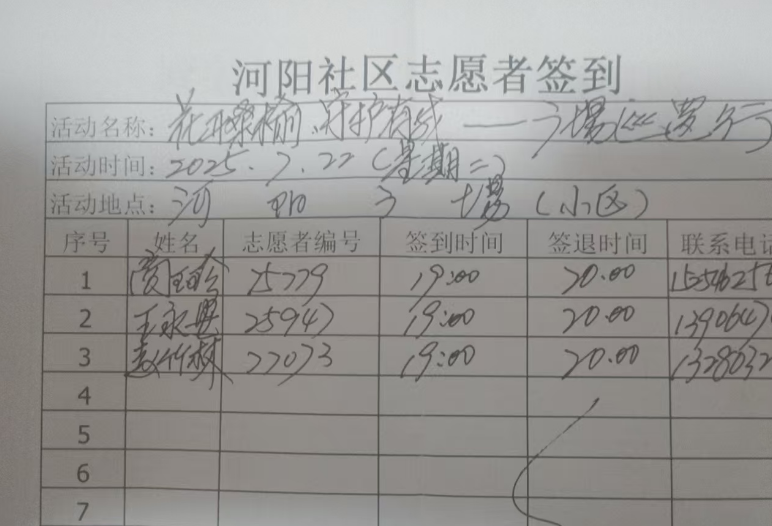 河阳社区志愿者签到
活动名称: 花开桑榆、守护有我——广场巡逻行
活动时间: 2025.7.22(星期二)
活动地点: 河阳广场(小区)
序号 姓名 志愿者编号 签到时间 签退时间 联系电话
1 25779 19:00 20:00
2 王永恩 25947 19:00 20:00 1390647
3 27073 19:00 20:00 1328032
4
5
6
7